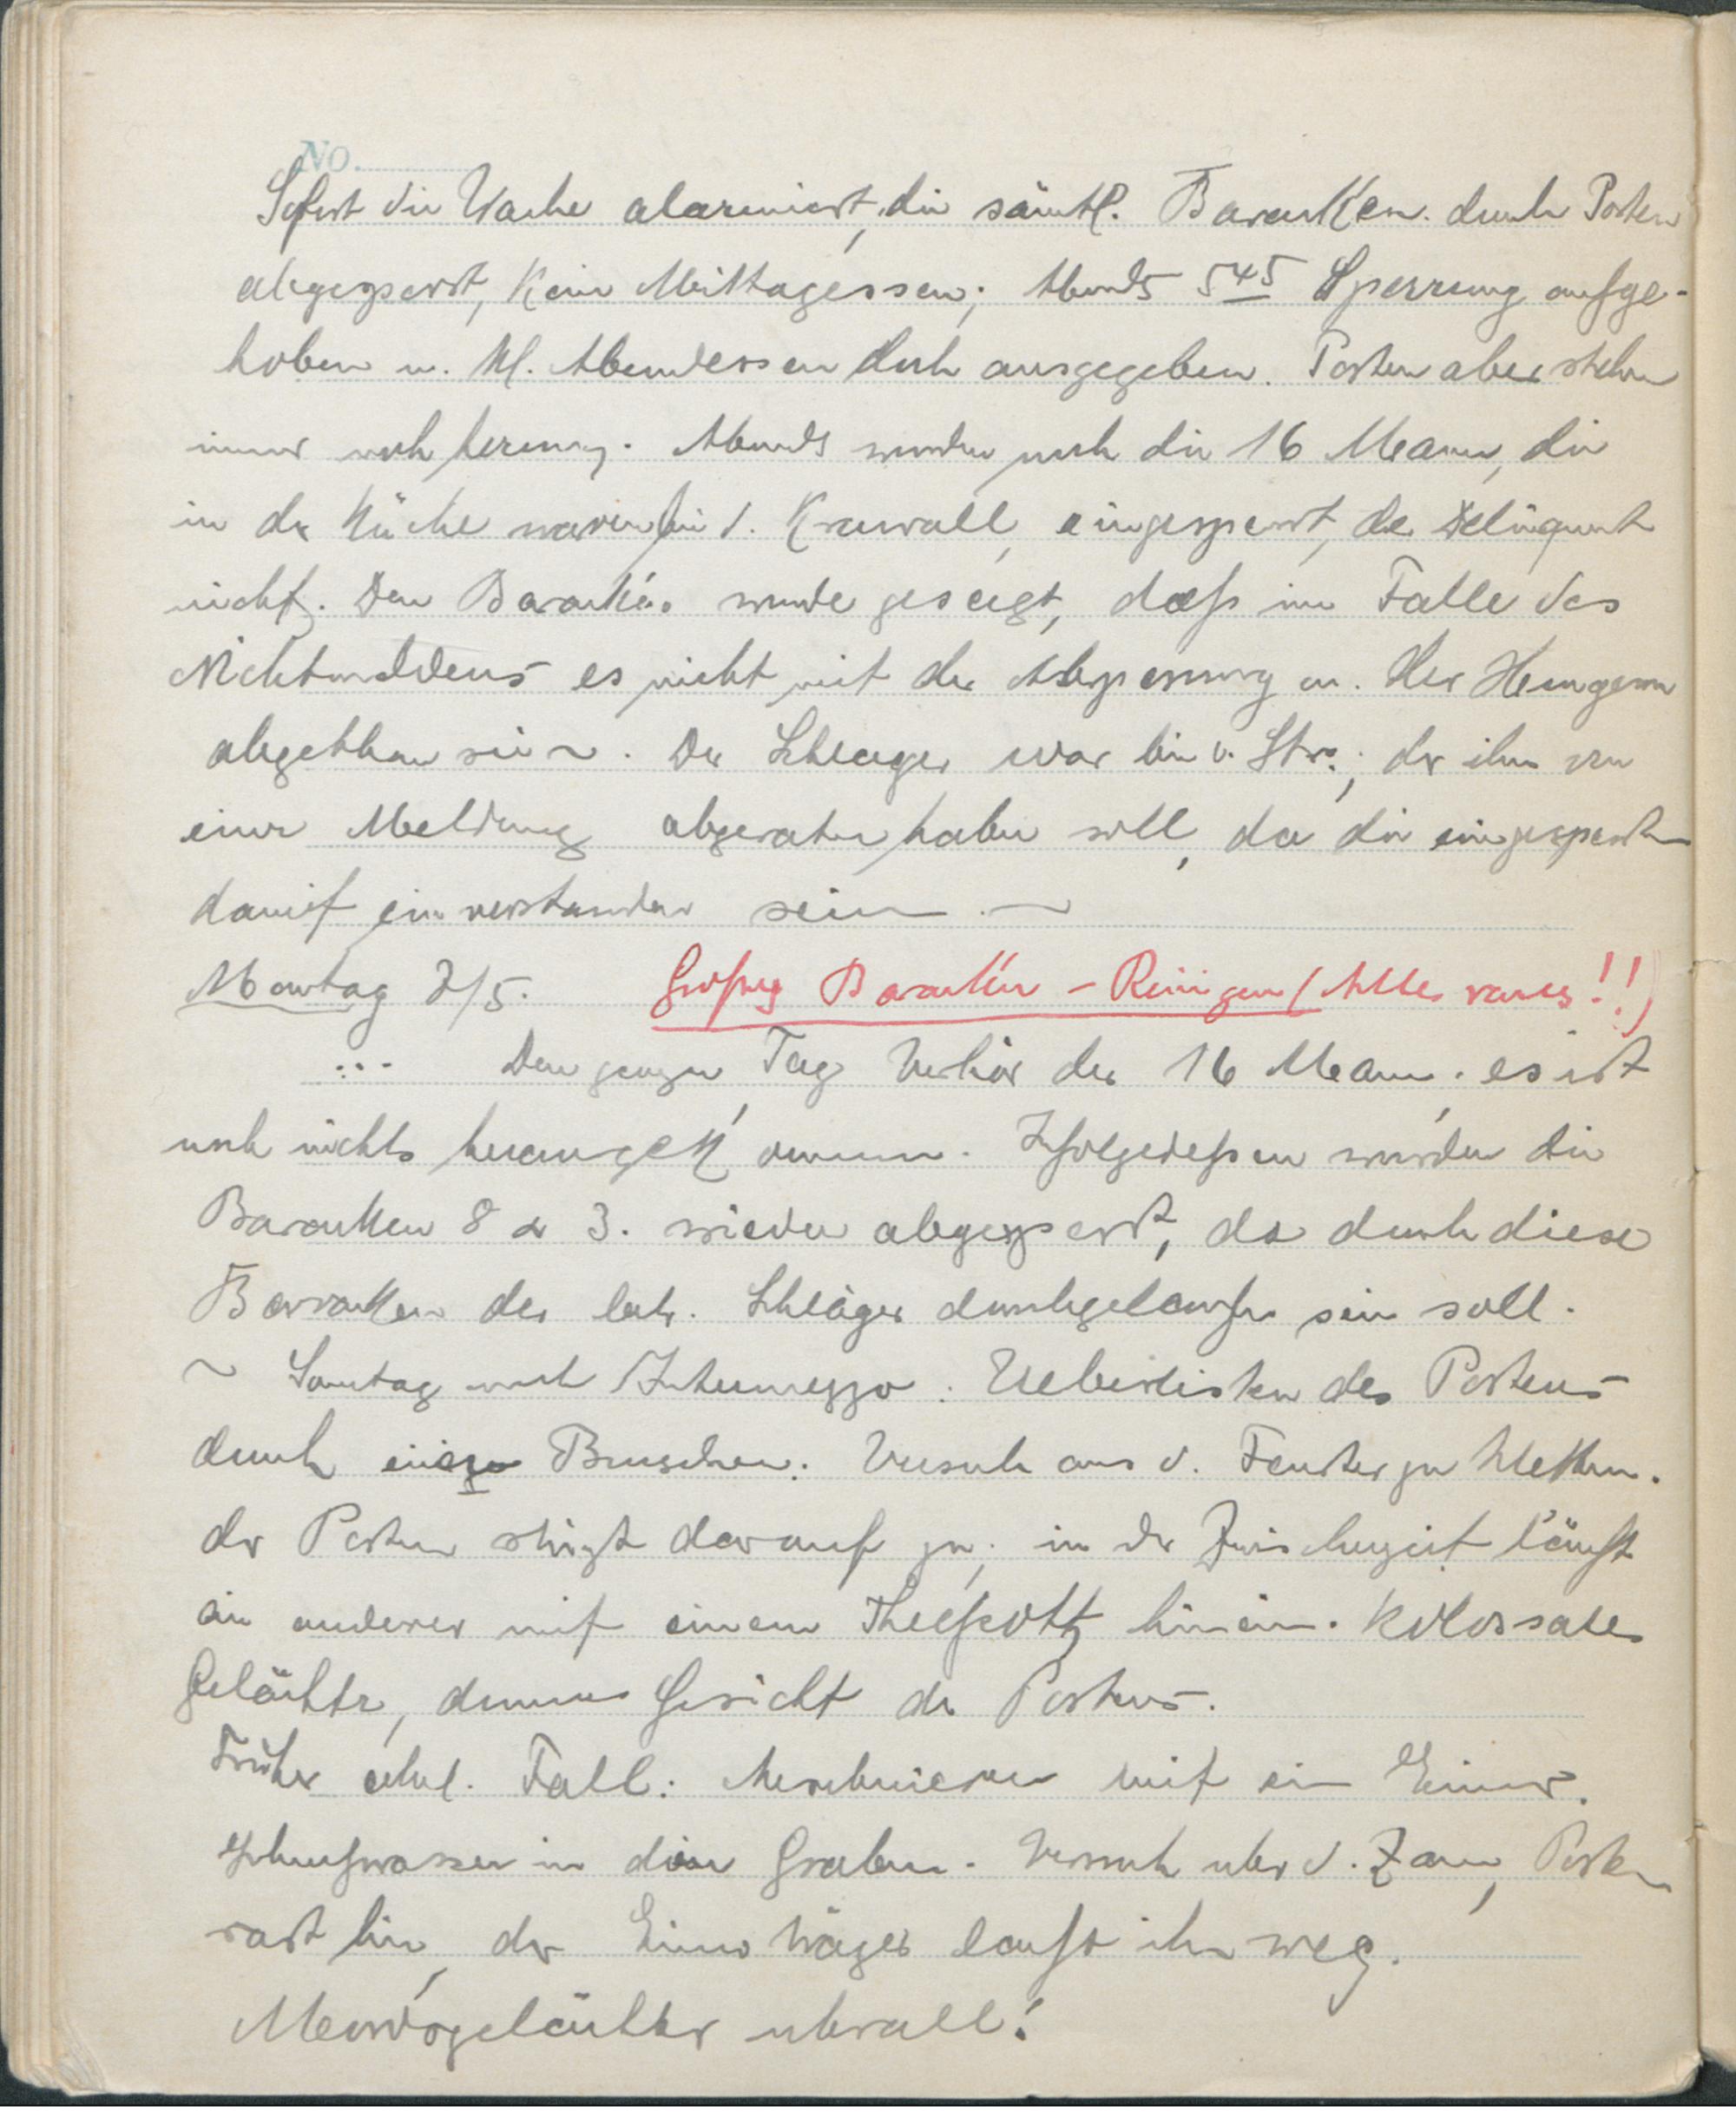 No.
Sofort die Wache alarmiert, die sämtl. Baracken durch Posten
abgesperrt, kein Mittagessen; Abends 5 45 Sperrung aufge-
hoben u. kl. Abendessen doch ausgegeben. Posten aber stehen
immer noch herum. Abends wurden noch die 16 Mann, die
in der Küche waren bei d. Krawall, eingesperrt, der Delinquent
nicht. Den Baracken wurde gesagt, dass im Falle des
Nichtmeldens es nicht mit der Absperrung u. der Hungern
abgethan sei ~. Der Schläger war bei v. Str.; der ihm von
einer Meldung abgeraten haben soll, da die eingesperrten
damit einverstanden seien. ~
Montag 7/5. Großes Baracken-Reinigen (Alles raus!!)
... Den ganzen Tag Verhör der 16 Mann. es ist
noch nichts herausgekommen. Infolgedessen wurden die
Baracken 8 & 3. wieder abgesperrt, da durch diese
Barracken der betr. Schläger durchgelaufen sein soll.
~ Sonntag noch Intermezzo: Ueberlisten des Postens
durch einige Burschen: Versuch aus d. Fenster zu klettern.
der Posten steigt darauf zu; in der Zwischenzeit läuft
ein anderer mit einem Theepott hinein. Kolossales
Gelächter, dummes Gesicht des Postens.
Früher ähnl. Fall: Marschieren mit ein Eimer
Schmutzwasser in den Graben. Versuch über d. Zaun, Posten
rast hin, der Eimerträger läuft ihm weg.
Mordsgelächter überall!